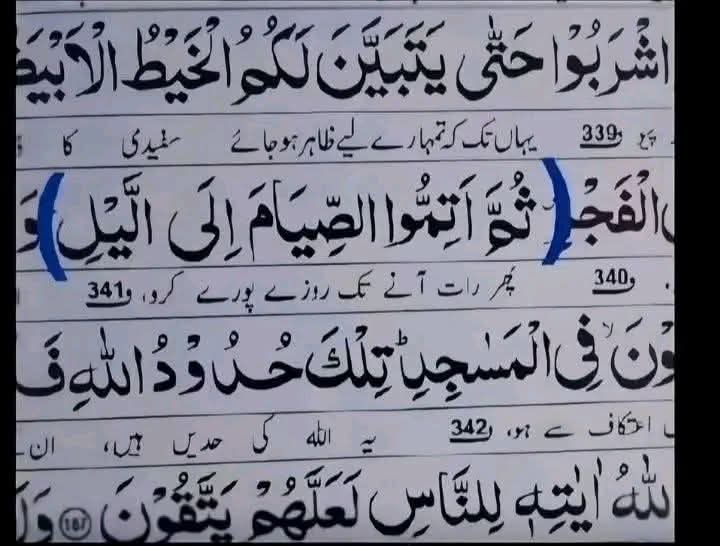 اشْرَبُوْا حَتّٰى يَتَبَيَّنَ لَكُمُ الْخَيْطُ الْاَبْيَضُ
پیو و339 یہاں تک کہ تمہارے لیے ظاہر ہو جائے سفیدی کا
الْفَجْرِ (ثُمَّ اَتِمُّوا الصِّيَامَ اِلَى الَّيْلِ) وَ
و340 پھر رات آنے تک روزے پورے کرو، و341
وْنَ ۙ فِى الْمَسٰجِدِ ؕ تِلْكَ حُدُوْدُ اللّٰهِ فَ
اعتکاف سے ہو، و342 یہ اللہ کی حدیں ہیں، ان
اللّٰهُ اٰيٰتِهٖ لِلنَّاسِ لَعَلَّهُمْ يَتَّقُوْنَ 187 وَلَ